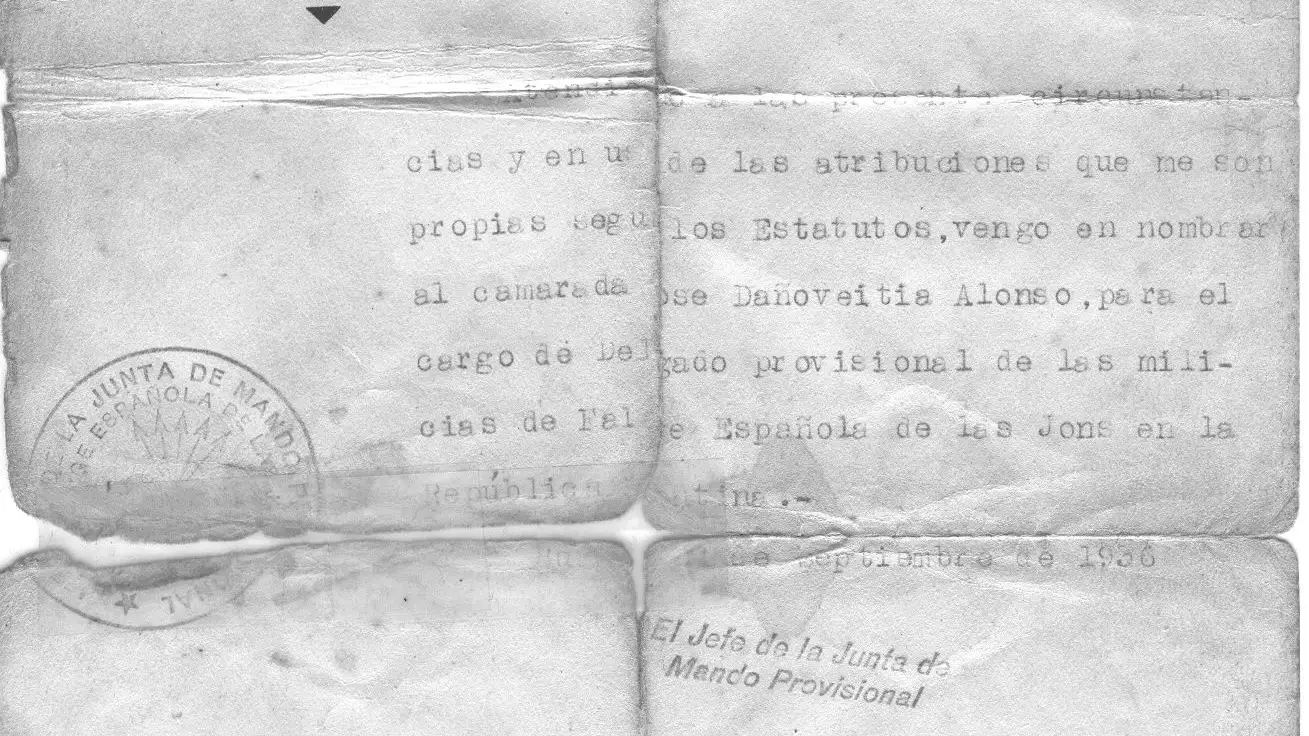 a las presente circunstan-
cias y en us de las atribuciones que me son
propias segu los Estatutos,vengo en nombrar
al camarada ose Dañoveitia Alonso,para el
cargo de Del gado provisional de las mili-
cias de Fal e Española de las Jons en la
República ntina.-
de septiembre de 1936
DE LA JUNTA DE MANDO P
GE ESPAÑOLA DE LA
NAL
El Jefe de la Junta de
Mando Provisional